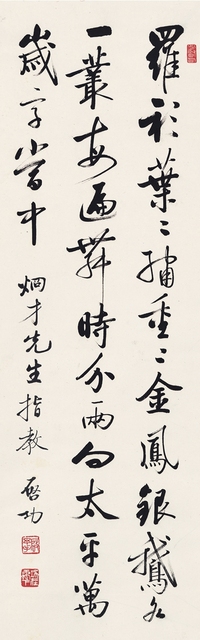 羅衫葉葉繡重重金鳳銀鵝各
一叢每遍舞時分兩向太平萬
歲字當中 炯才先生指教 啓功